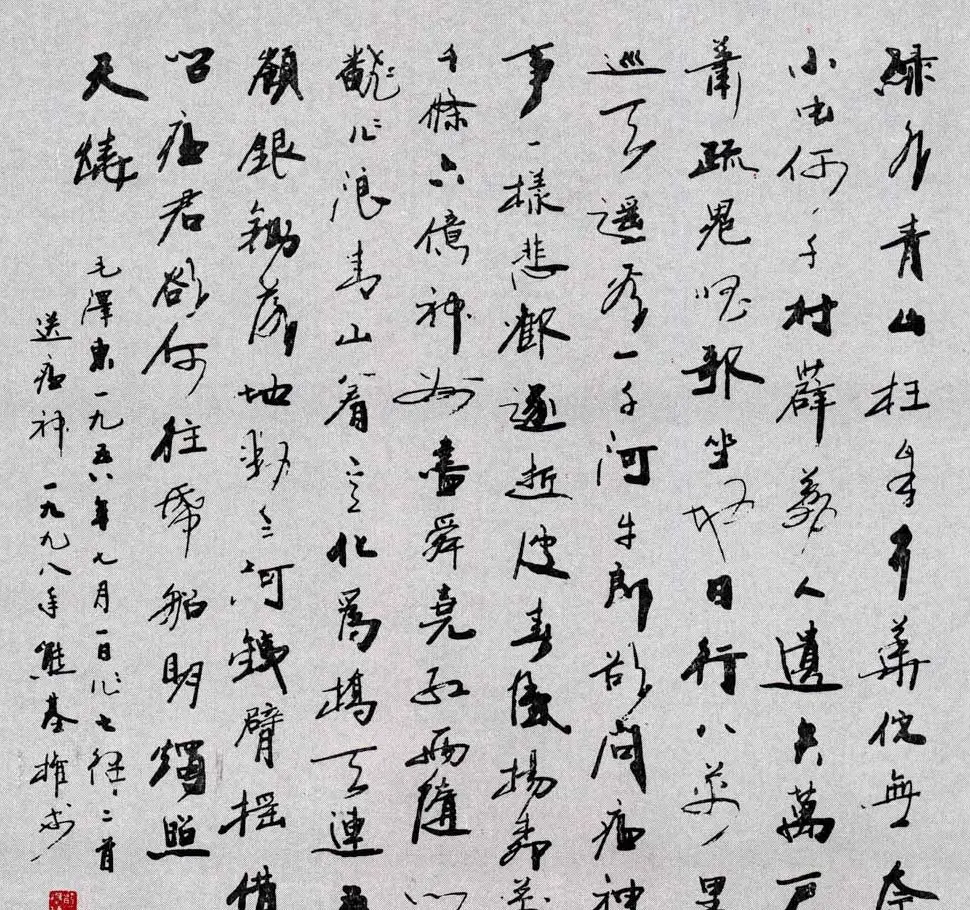 緑水青山枉自多華佗無奈
小虫何千村薜荔人遺矢萬户
蕭疏鬼唱歌坐地日行八萬里
巡天遥看一千河牛郎欲問瘟神
事一樣悲歡逐逝波春風楊柳萬
千條六億神州盡舜堯紅雨隨心
翻作浪青山着意化為橋天連五
嶺銀鋤落地動三河鐵臂摇借
問瘟君欲何往紙船明燭照
天燒
毛澤東一九五八年七月一日作七律二首
送瘟神一九九八年熊基權书